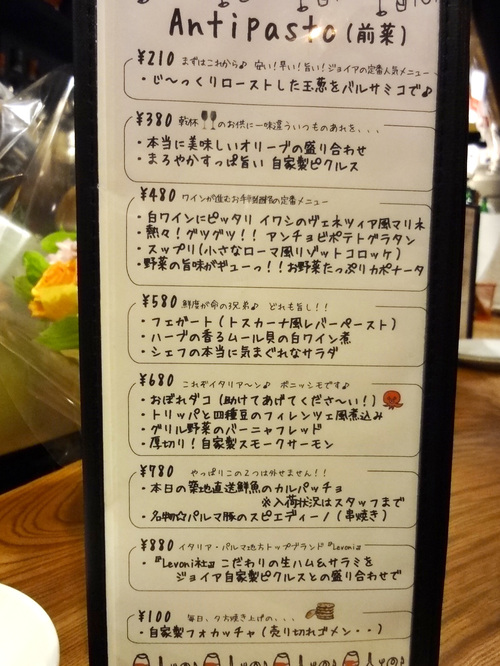 Antipasto(前菜)
¥210 まずはこれから♪ 安い!早い!旨い!ジョイアの定番人気メニュー
・じ〜っくりローストした玉葱をバルサミコで♪
¥380 乾杯のお供に一味違ういつものあれを、、、
・本当に美味しいオリーブの盛り合わせ
・まろやかすっぱ旨い 自家製ピクルス
¥480 ワインが進むお手頃の定番メニュー
・白ワインにピッタリ イワシのヴェネツィア風マリネ
・熱々!グツグツ!! アンチョビポテトグラタン
・スップリ(小さなローマ風リゾットコロッケ)
・野菜の旨味がギューっ!!お野菜たっぷりカポナータ
¥580 鮮度が命の3兄弟♪ どれも旨し!!
・フェガート(トスカーナ風レバーペースト)
・ハーブの香るムール貝の白ワイン煮
・シェフの本当に気まぐれなサラダ
¥680 これぞイタリア〜ン♪ ボニッシモです♪
・おぼれダコ(助けてあげてくださ〜い!)
・トリッパと四種豆のフィレンツェ風煮込み
・グリル野菜のバーニャフレッド
・厚切り!自家製スモークサーモン
¥780 やっぱりこの2つは外せません!!
・本日の築地直送鮮魚のカルパッチョ
※入荷状況はスタッフまで
・名物☆パルマ豚のスピエディーノ(串焼き)
¥880 イタリア・パルマ地方トップブランド『Levoni』
・『Levoni社』こだわりの生ハム&サラミを
ジョイア自家製ピクルスとの盛り合わせで
¥100 毎日、夕方焼き上げの、、、
・自家製フォカッチャ(売り切れゴメン・・)